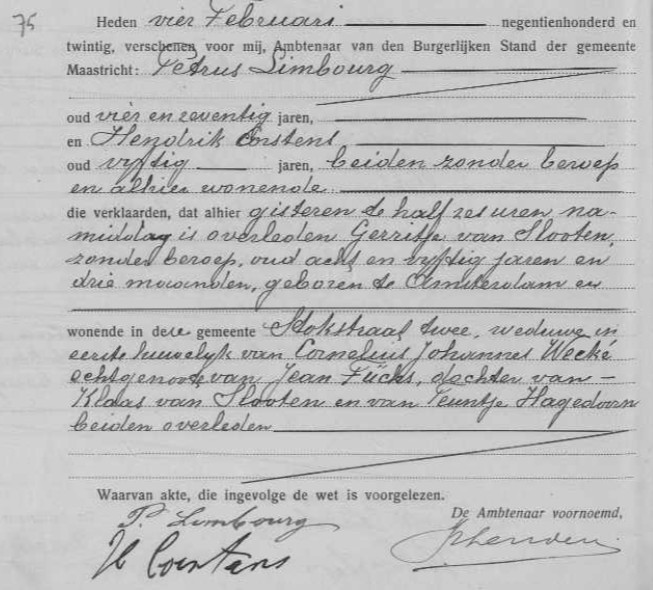 75
Heden vier Februari negentienhonderd en
twintig, verschenen voor mij, Ambtenaar van den Burgerlijken Stand der gemeente
Maastricht: Petrus Limbourg
oud vier en zeventig jaren,
en Hendrik
oud vyftig jaren, beiden zonder beroep
en alhier wonende
die verklaarden, dat alhier gisteren te half zes uren na-
middag is overleden Gerritje van Slooten,
zonder beroep, oud acht en vyftig jaren en
drie maanden, geboren te Amsterdam en
wonende in deze gemeente Stokstraat twee, weduwe in
eerste huwelyk van Cornelius Johannes Wecké
echtgenoote van Jean Fücks, dochter van -
Klaas van Slooten en van Teuntje Hagedoorn
beiden overleden
Waarvan akte, die ingevolge de wet is voorgelezen.
De Ambtenaar voornoemd,
P. Limbourg
H Coenstens